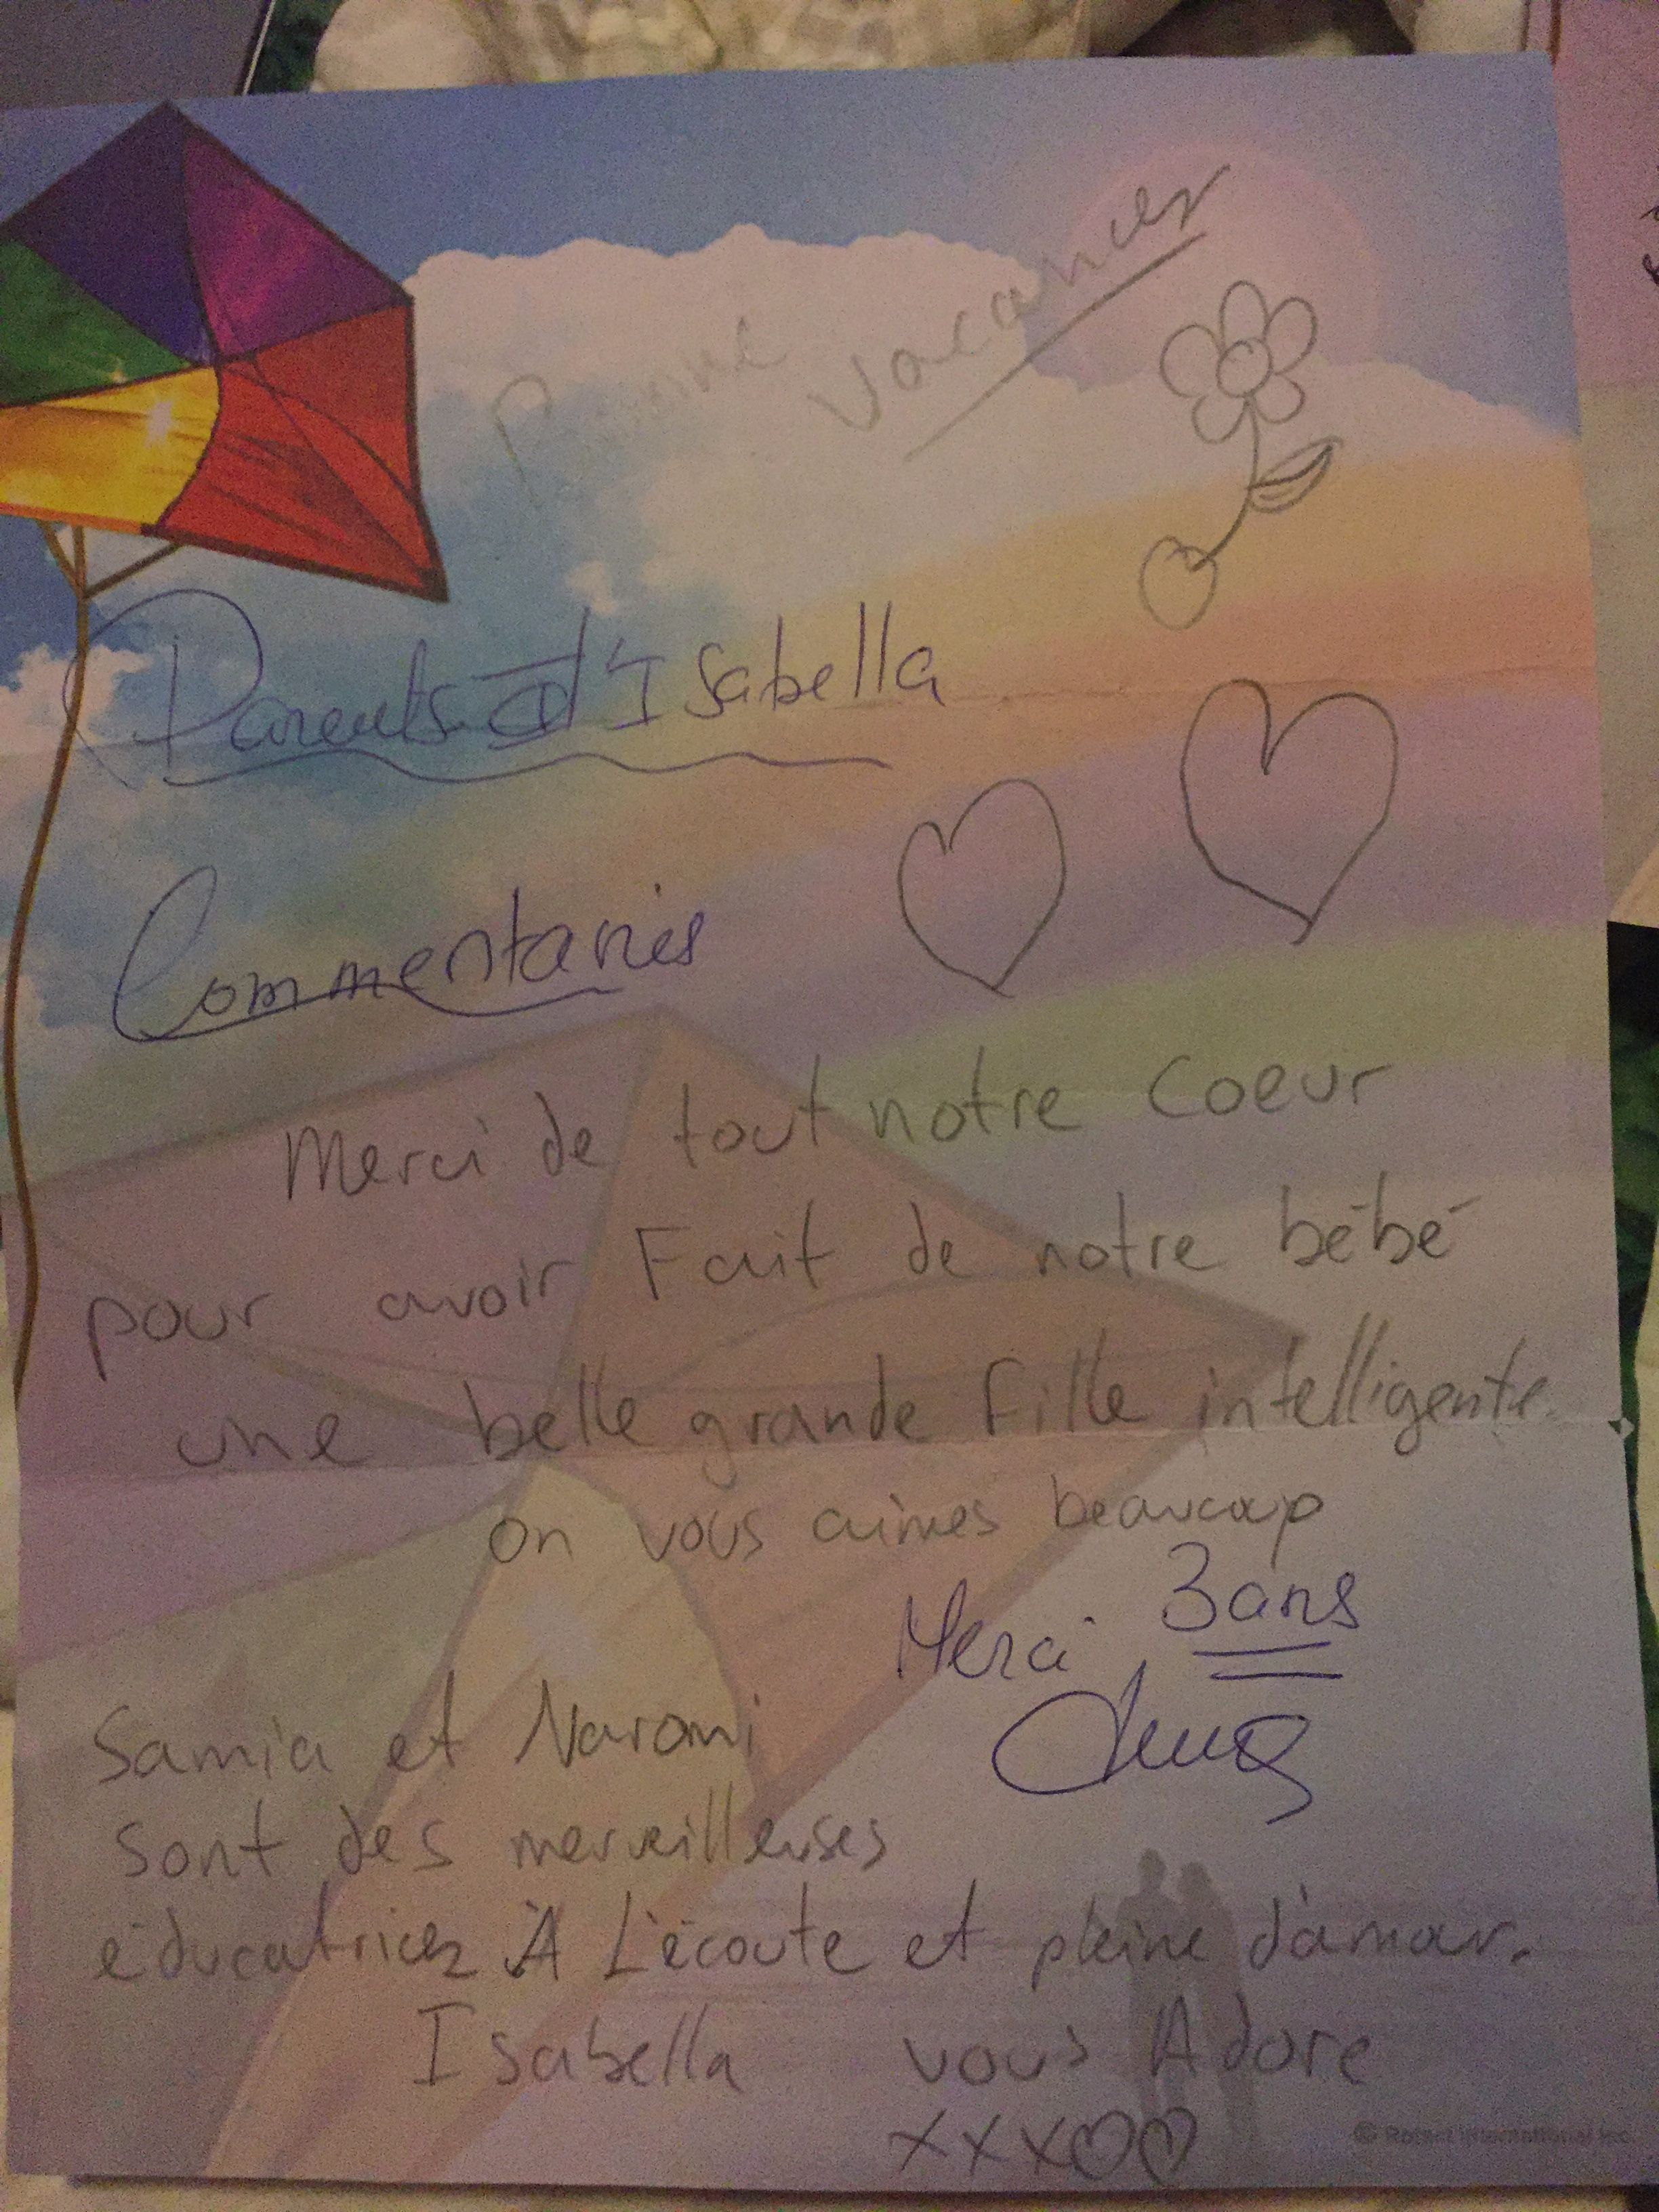 vacances
Parents d'Isabella
Commentaries
Merci de tout notre Coeur
pour avoir Fait de notre bébé
une belle grande fille intelligente.
on vous aimes beaucoup
Merci 3 ans
Samia et Naromi
sont des merveilleuses
éducatrices À L'écoute et pleine d'amour.
Isabella vous Adore
xxx♡♡
© Rotact International Inc.